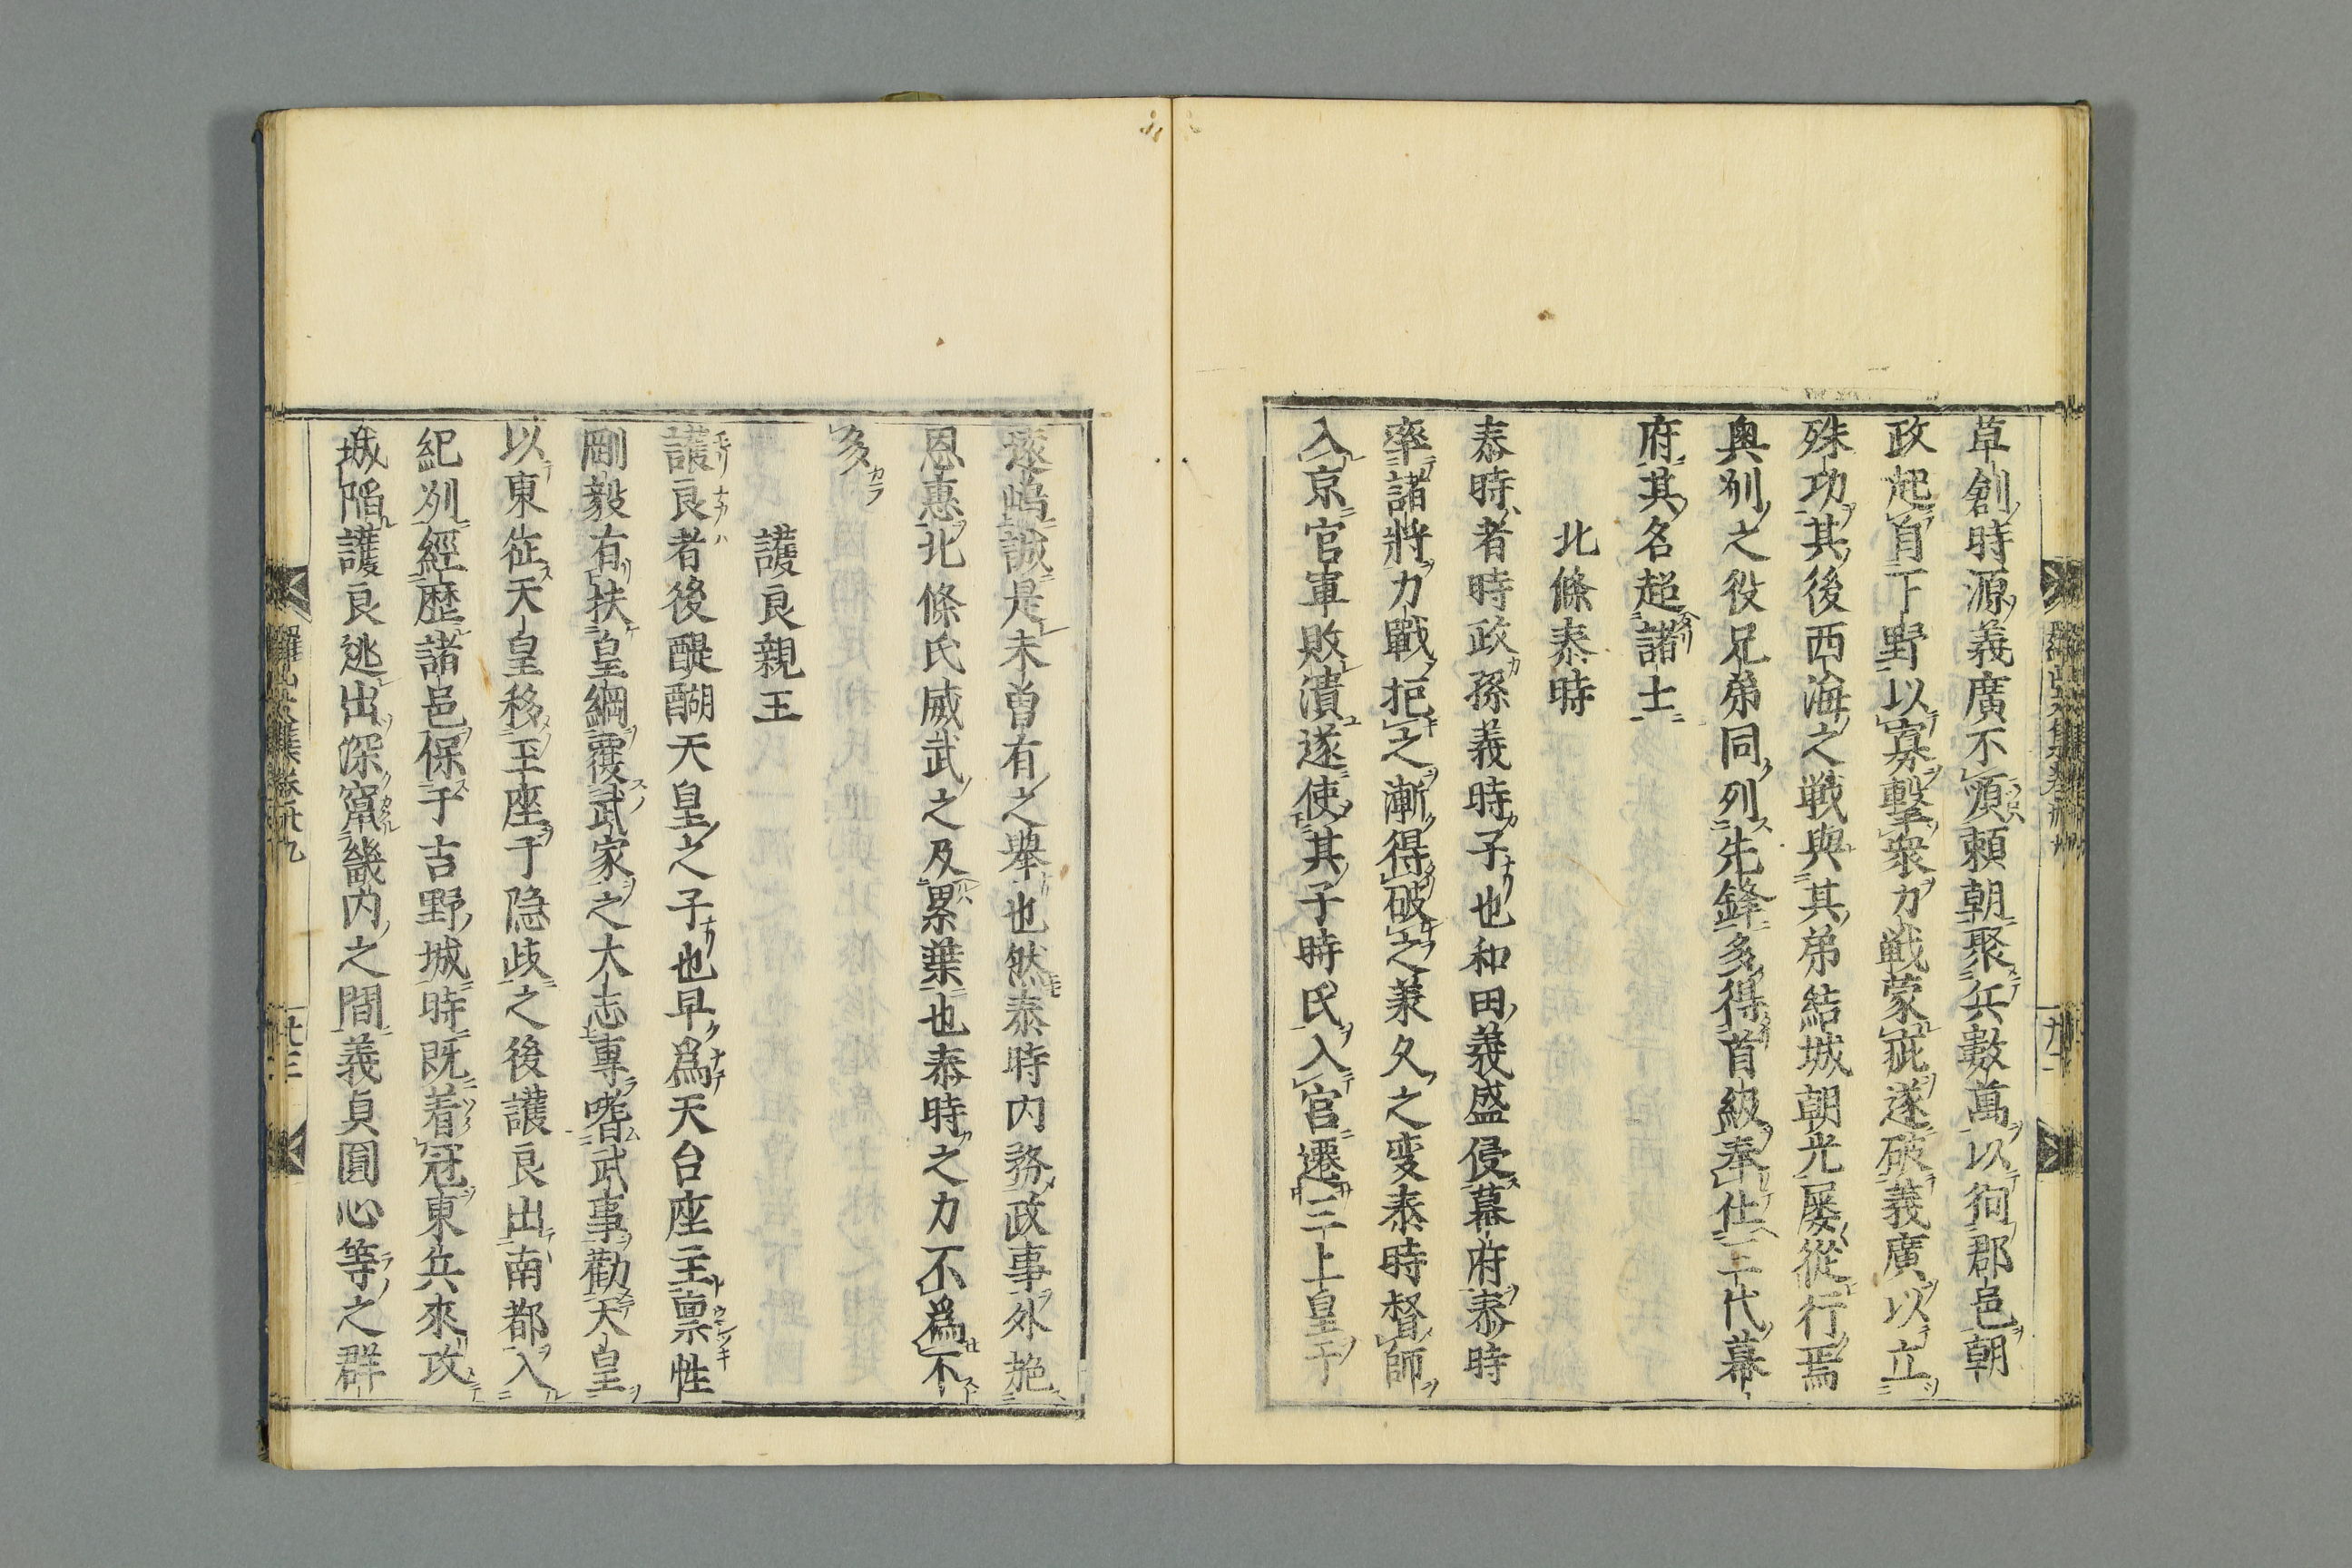 草創時源義廣不順賴朝聚兵數萬以徇郡邑朝
政起自下野以寡擊衆力戦蒙疵遂破義廣以立
殊功其後西海之戦與其弟結城朝光屡從行焉
奥州之役兄弟同列先鋒多得首級奉仕二代幕
府其名超諸士
北條泰時
泰時者時政孫義時子也和田義盛侵幕府泰時
率諸將力戰拒之漸得破之兼久之変泰時督師
入京官軍敗潰遂使其子時氏入官遷三上皇于
逐嶋誠是未曽有之舉也然泰時内務政事外施
恩惠北條氏威武之及累葉也泰時之力不爲不
多
護良親王
護良者後醍醐天皇之子也早爲天台座主禀性
剛毅有扶皇綱覆武家之大志專嗜武事勸天皇
以東征天皇移玉座于隠歧之後護良出南都入
紀州經歷諸邑保于吉野城時既着冠東兵來攻
城陷護良逃出深竄畿内之間義貞圓心等之群
羅山文集卷卅九
廿三